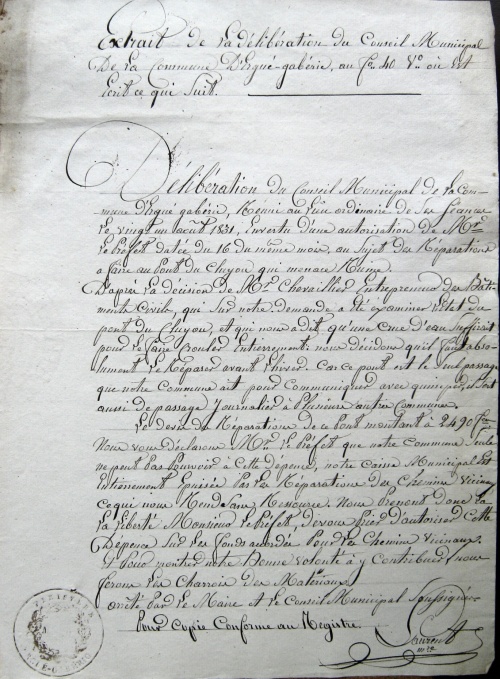 Extrait de la délibération du Conseil Municipal
De la Commune D'Ergué-gabéric, au f.º 40 V.º où est
écrit ce qui suit.
Délibération du Conseil Municipal de la Com-
mune d'Ergué gabéric, Réuni au lieu ordinaire de ses séances
Le vingt un août 1831, en vertu d'une autorisation de Mr.
Le Préfet datée du 16 du même mois, au sujet des Réparations
à faire au pont du Cluyou qui menace Ruine.
D'après la décision de Mr. Chevallier Entrepreneur des Bâti-
ments Civils, qui sur notre demande a été examiner l'état du
pont du Cluyou, et qui nous a dit qu'une crue d'eau suffirait
pour le faire crouler Entièrement: nous décidons qu'il faut abso-
lument le Réparer avant l'hiver. Car ce pont est le seul passage
que notre commune ait pour communiquer avec quimper, il sert
aussi de passage Journalier à Plusieurs autres Communes.
Le devis des Réparations de ce pont montant à 2490 f
Nous vous déclarons Mr. le Préfet que notre commune seule
ne peut pas pourvoir à Cette dépense, notre caisse Municipal Est
Entièrement Epuisée Par les Réparations des Chemins Vicinaux
ce qui nous Rend Sans Ressources. Nous Prenons donc La
La liberté Monsieur le Préfet, de vous Prier d'autoriser Cette
Dépence Sur les fonds accordés Pour les Chemins Vicinaux.
Et pour montrer notre Bonne Volonté à y Contribuer, nous
ferons les Charrois des Matériaux.
arrêté par le Maire et le Conseil Municipal Soussignés.
Pour Copie Conforme au Registre.
Laurent
mre